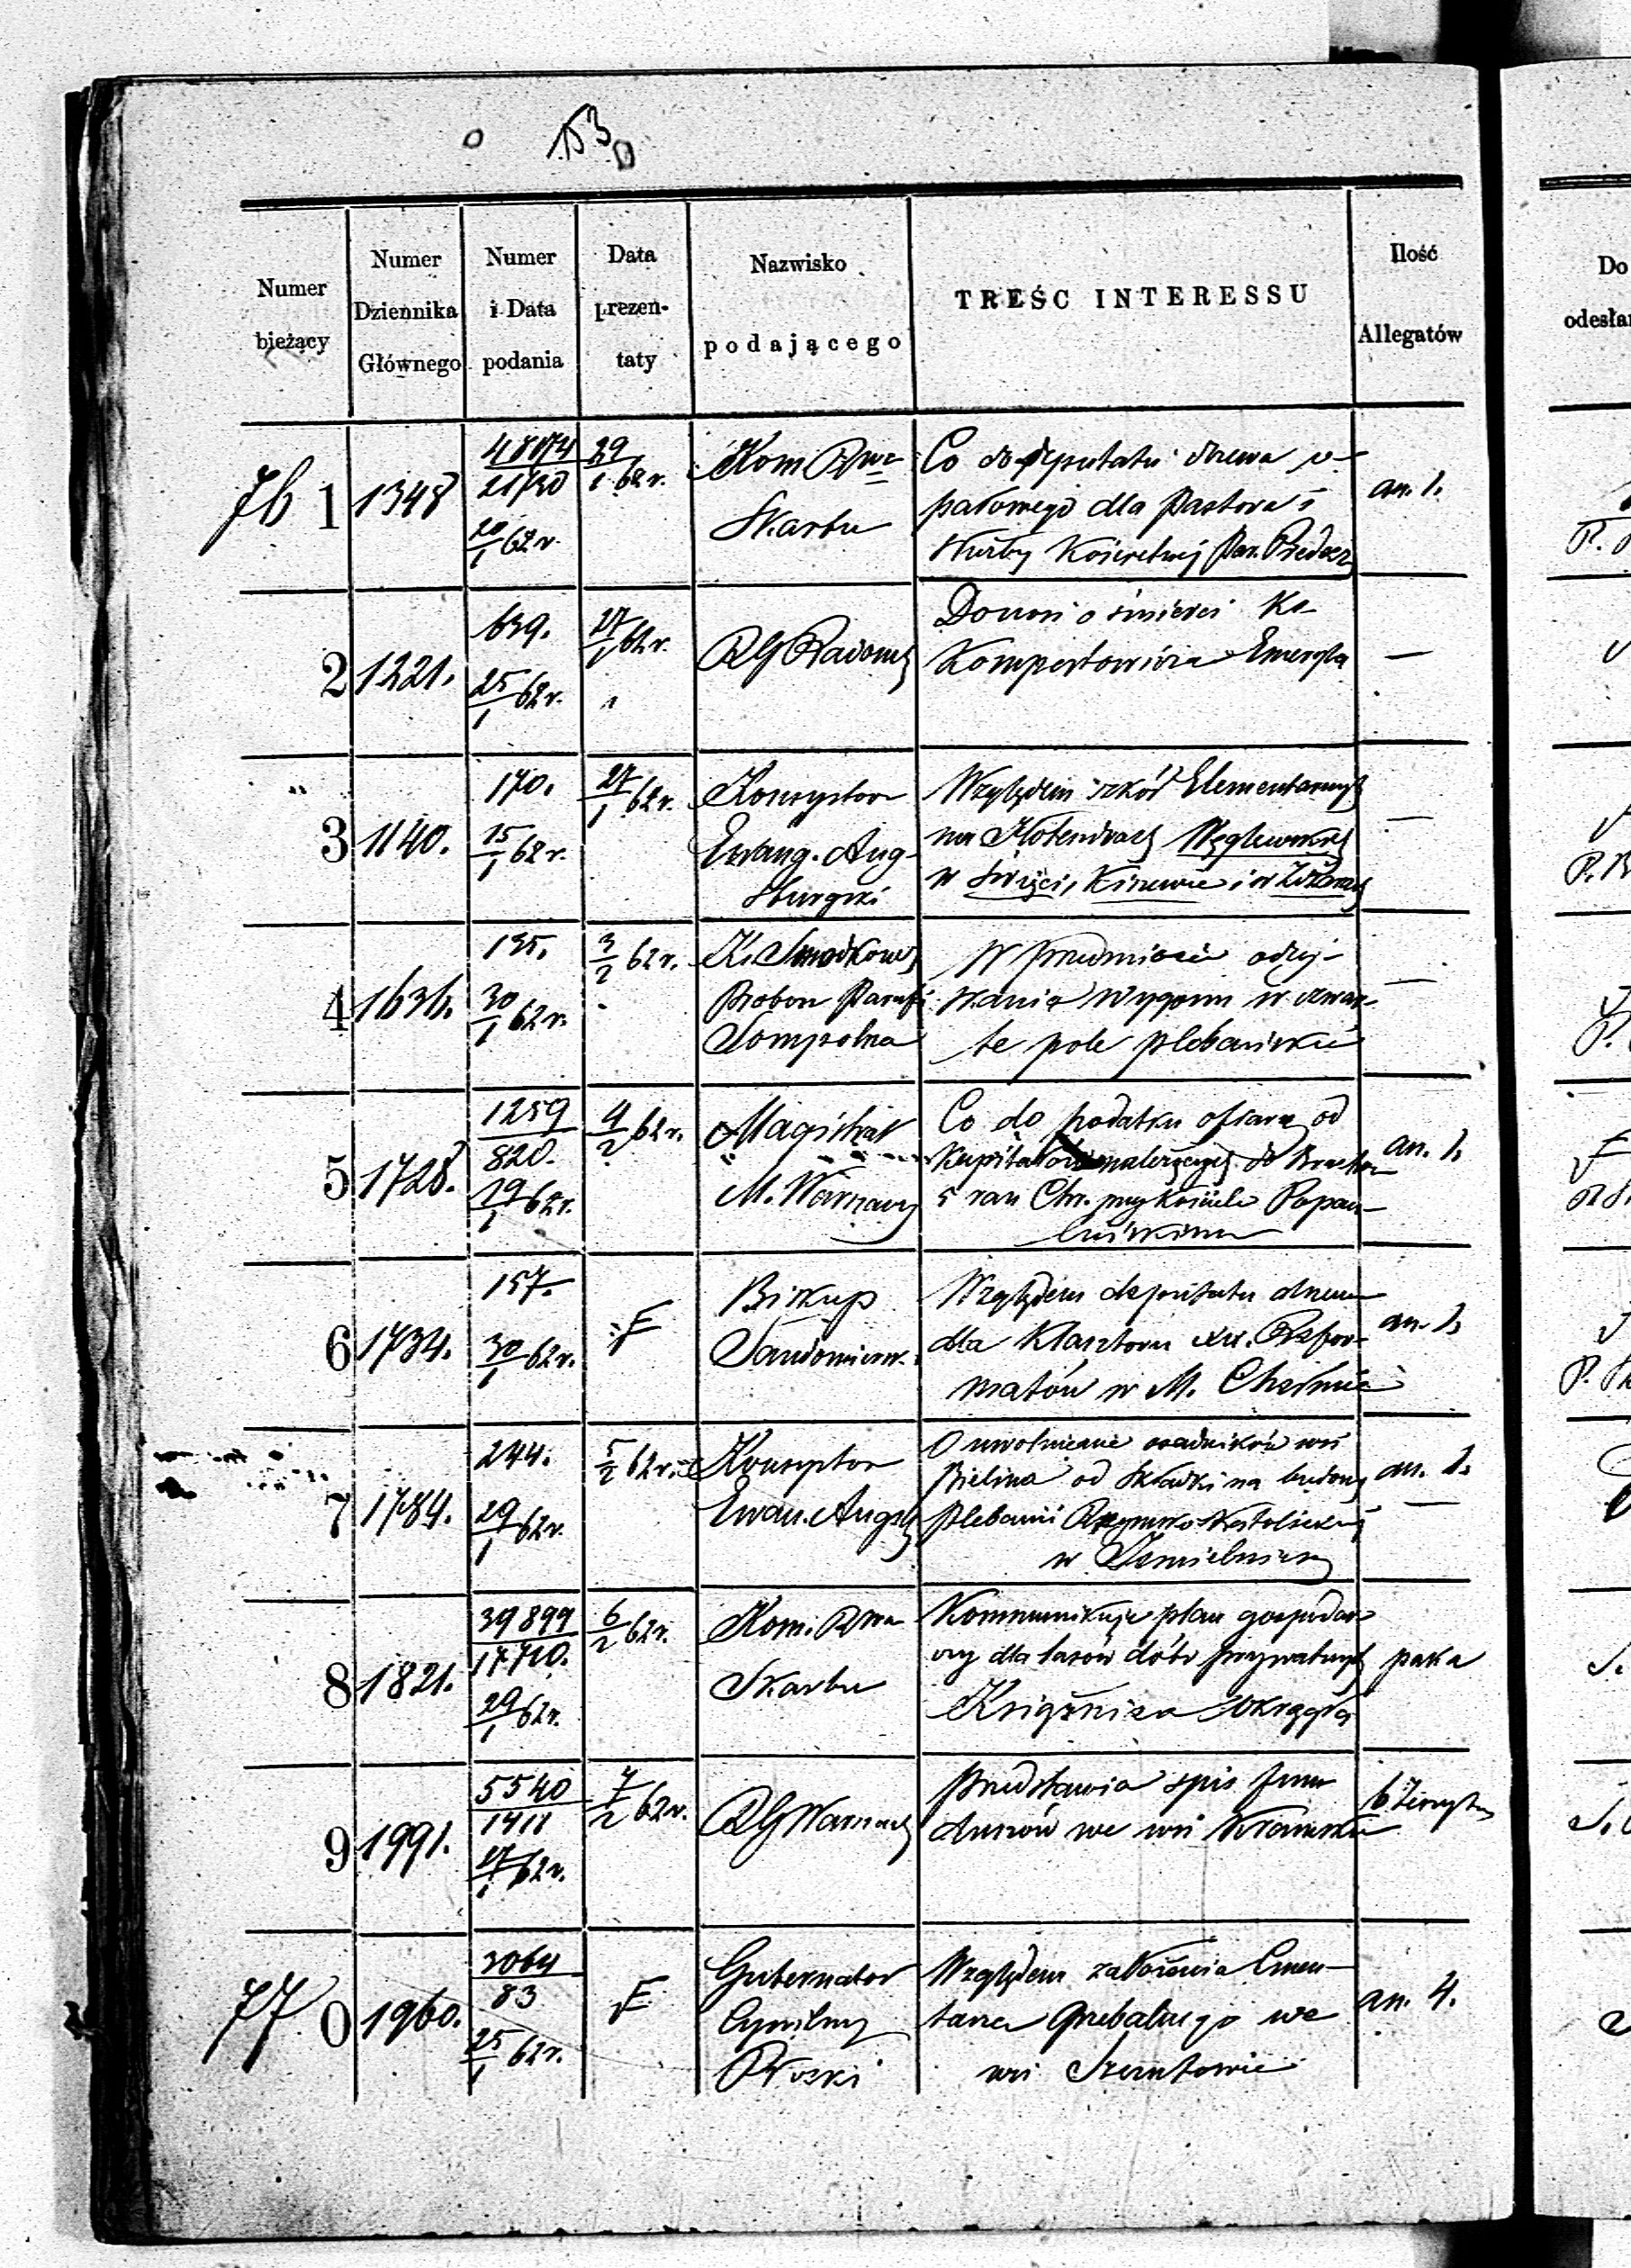 53
Numer bieżący
Numer Dziennika Głównego
Numer i Data podania
Data prezen- taty
Nazwisko podającego
TREŚC INTERESSU
Ilość Allegatów
Do
odesła
76 1
1348
21730
20/1 62 r.
29/1 62 r.
Kom Rwa
Skarbu
Co do deputatu drzewa o-
pałowego dla Pastora i
służby Kościelnej Par.
an. 1.
2
1221.
639.
25/1 62 r.
27/1 62 r.
RG Radoms
Donosi o śmierci Ks
Emeryta
—
3
1140.
170.
15/1 62 r.
27/1 62 r.
Konsystor
Ewang. Aug-
sburgski
Względem szkół Elementarnych
na Holendrach Węglewskich
w Święci, Kiszewie i w
—
4
1636.
135.
30/1 62 r.
3/2 62 r.
Ks
Probon Parafi
Sompolna
W przedmiocie odzy-
skania wygonu w czwar-
te pole plebańskie
—
5
1728.
1259
820.
19/1 62 r.
4/2 62 r.
Magistrat
M. Warszawy
Co do podatku ofiary od
Kapitałów należących do Bractwa
5 ran Chr. przy kościele Popau-
lińskim
an. 1.
6
1734.
157.
30/1 62 r.
Biskup
Sandomiersk.
Względem deputatu drzewa
dla Klasztoru xx. Refor-
matów w M.
an. 1.
7
1784.
244.
29/1 62 r.
5/2 62 r.
Konsystor
Ewan. Augsb
O uwolnienie osadników wsi
Bielina od składki na budowę
plebanii Rzymsko Katolickiej
w
an. 1.
8
1821.
39899
17710.
29/1 62 r.
6/2 62 r.
Kom. Rwa
Skarbu
Kommunikuje plan gospodar-
czy dla lasów dóbr prywatnych
Książnica Okrągła
paka
9
1991.
5540
1411
17/1 62 r.
7/2 62 r.
RG Warszaws
Przedstawia spis fun-
duszów we wsi
77 0
1960.
3064
83
25/1 62 r.
Gubernator
Cywilny
Płocki
Względem założenia Cmen-
tarza Grzebalnego we
wsi
an. 4.